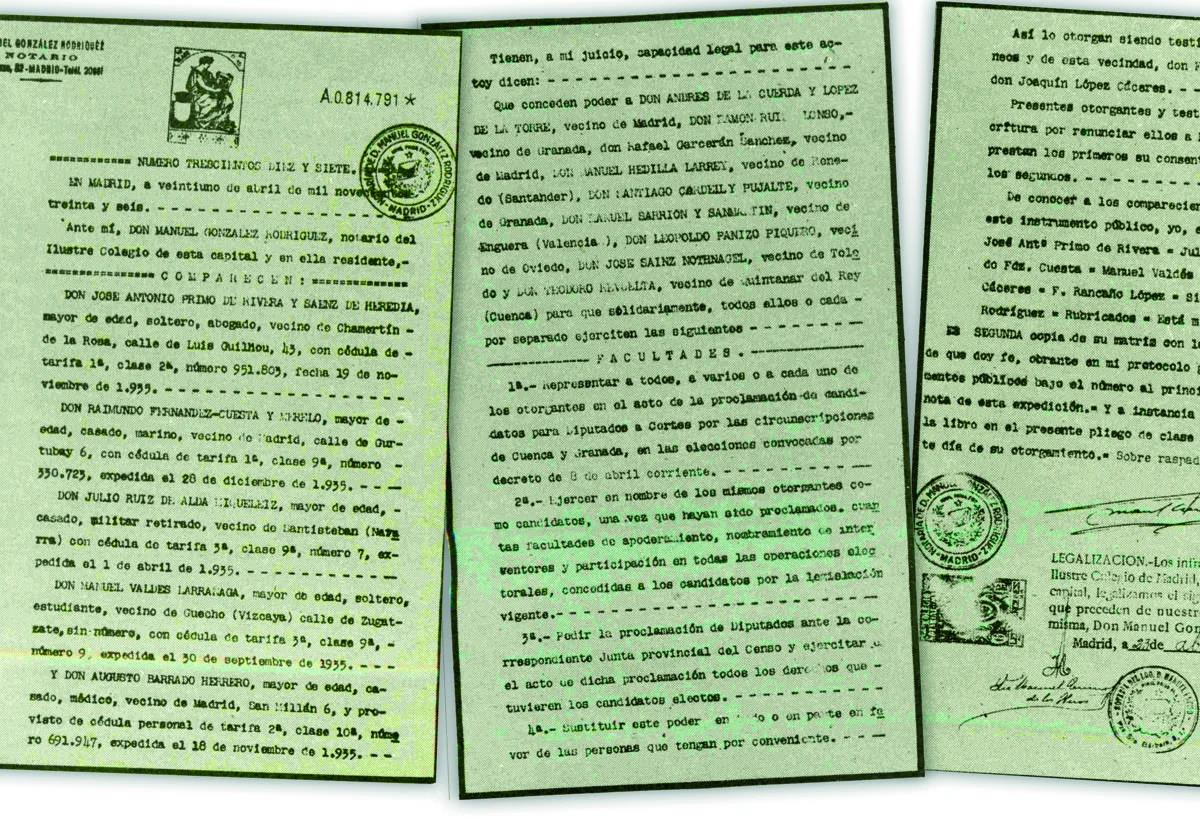 EL GONZÁLEZ RODRIGUEZ
NOTARIO
82-MADRID-Teléf. 20661
A.0.814.791*
NOTARIA DE D. MANUEL GONZÁLEZ RODRIGUEZ -MADRID-
=========== NUMERO TRESCIENTOS DIEZ Y SIETE.
EN MADRID, a veintiuno de abril de mil novecientos
treinta y seis. - - - - - - - - - - - - - - - -
Ante mí, DON MANUEL GONZALEZ RODRIGUEZ, notario del
Ilustre Colegio de esta capital y en ella residente,-
============== C O M P A R E C E N : ==============
DON JOSE ANTONIO PRIMO DE RIVERA Y SAENZ DE HEREDIA,
mayor de edad, soltero, abogado, vecino de Chamertín -
de la Rosa, calle de Luis Guilhou, 43, con cédula de -
tarifa 1ª, clase 2ª, número 951.803, fecha 19 de no-
viembre de 1.935. - - - - - - - - - - - - - - -
DON RAIMUNDO FERNANDEZ-CUESTA Y MERELO, mayor de -
edad, casado, marino, vecino de Madrid, calle de Gur-
tubay 6, con cédula de tarifa 1ª, clase 9ª, número -
330.723, expedida el 28 de diciembre de 1.935. - - - -
DON JULIO RUIZ DE ALDA MIQUELEIZ, mayor de edad, -
casado, militar retirado, vecino de Santisteban (Nava
rra) con cédula de tarifa 3ª, clase 9ª, número 7, ex-
pedida el 1 de abril de 1.935. - - - - - - - - - -
DON MANUEL VALDES LARRAÑAGA, mayor de edad, soltero,
estudiante, vecino de Guecho (Vizcaya) calle de Zugat-
zate, sin número, con cédula de tarifa 3ª, clase 9ª, -
número 9, expedida el 30 de septiembre de 1935. - - -
Y DON AUGUSTO BARRADO HERRERO, mayor de edad, ca-
sado, médico, vecino de Madrid, San Millán 6, y pro-
visto de cédula personal de tarifa 2ª, clase 10ª, núme
ro 691.947, expedida el 18 de noviembre de 1.935. - - -
Tienen, a mi juicio, capacidad legal para este ac-
toy dicen: - - - - - - - - - - - - - - - - - -
Que conceden poder a DON ANDRES DE LA CUERDA Y LOPEZ
DE LA TORRE, vecino de Madrid, DON RAMON RUIZ ALONSO,-
vecino de Granada, don Rafael Garcerán Sanchez, vecino
de Madrid, DON MANUEL HEDILLA LARREY, vecino de Rene-
do (Santander), DON SANTIAGO CARDELL Y PUJALTE, vecino
de Granada, DON MANUEL SARRION Y SANMARTIN, vecino de
Enguera (Valencia), DON LEOPOLDO PANIZO PIQUERO, veci
no de Oviedo, DON JOSE SAINZ NOTHNAGEL, vecino de Tole
do y DON TEODORO REVUELTA, vecino de Quintanar del Rey
(Cuenca) para que solidariamente, todos ellos o cada -
por separado ejerciten las siguientes - - - - - - - -
---------------- F A C U L T A D E S . ----------------
1ª.- Representar a todos, a varios o a cada uno de
los otorgantes en el acto de la proclamación de candi-
datos para Diputados a Cortes por las circunscripciones
de Cuenca y Granada, en las elecciones convocadas por
decreto de 8 de abril corriente. - - - - - - - - - -
2ª.- Ejercer en nombre de los mismos otorgantes co-
mo candidatos, una vez que hayan sido proclamados, cuan
tas facultades de apoderamiento, nombramiento de inter
ventores y participación en todas las operaciones elec
torales, concedidas a los candidatos por la legislación
vigente. - - - - - - - - - - - - - - - - - - -
3ª.- Pedir la proclamación de Diputados ante la co-
rrespondiente Junta provincial del Censo y ejercitar
el acto de dicha proclamación todos los derechos que -
tuvieren los candidatos electos. - - - - - - - - -
4ª.- Sustituir este poder en todo o en parte en fa
vor de las personas que tengan por conveniente. - - - -
Así lo otorgan siendo testi
neos y de esta vecindad, don F
don Joaquín López Cáceres. - - -
Presentes otorgantes y test
critura por renunciar ellos a
prestan los primeros su consent
los segundos. - - - - - - - - -
De conocer a los comparecien
este instrumento público, yo, e
José Antº Primo de Rivera = Jul
do Fdz. Cuesta = Manuel Valdés
Cáceres = F. Rancaño López = Si
Rodríguez = Rubricados = Está m
ES SEGUNDA copia de su matriz con l
de que doy fe, obrante en mi protocolo
mentos públicos bajo el número al princi
nota de esta expedición.= Y a instancia
la libro en el presente pliego de clase
te día de su otorgamiento.= Sobre raspad
NOTARIA DE D. MANUEL GONZÁLEZ RODRIGUEZ -MADRID-
LEGALIZACION.-Los infra
Ilustre Colegio de Madrid,
capital, legalizamos el sig
que preceden de nuestr
misma, Don Manuel Gon
Madrid, a 23 de ab